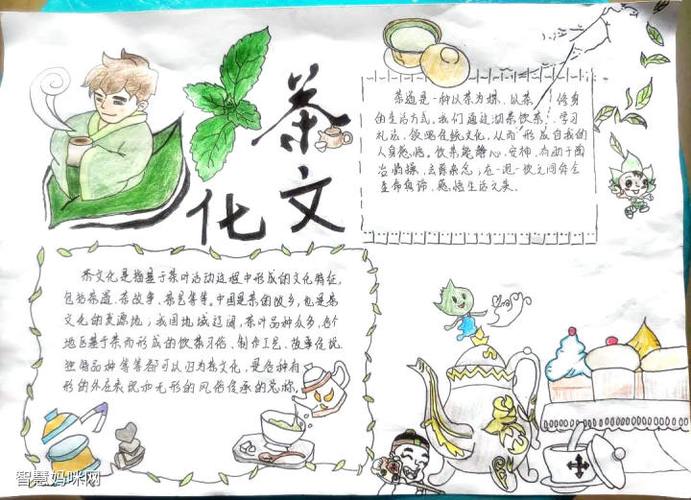 茶文化
茶道是一种以茶为媒、以茶 修身
的生活方式。我们通过沏茶饮茶、学习
礼法、领略传统文化,从而形成自我的
人身感悟。饮茶能静心、安神,有助于陶
冶情操、去除杂念;在一泡一饮之间
真谛,感悟生活之美。
茶文化是指基于茶叶活动过程中形成的文化特征,
包括茶道、茶故事、茶具等等。中国是茶的故乡,也是茶
文化的发源地;我国地域辽阔,茶叶品种众多,各个
地区基于茶而形成的饮茶习俗、制作工艺、故事传说
独特品种等等都可以归为茶文化,是各种有
形的外在表现和无形的风俗传承的总称。
智慧妈咪网